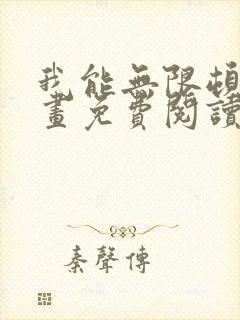 我能無限頓
畫免費閱讀
秦聲傳